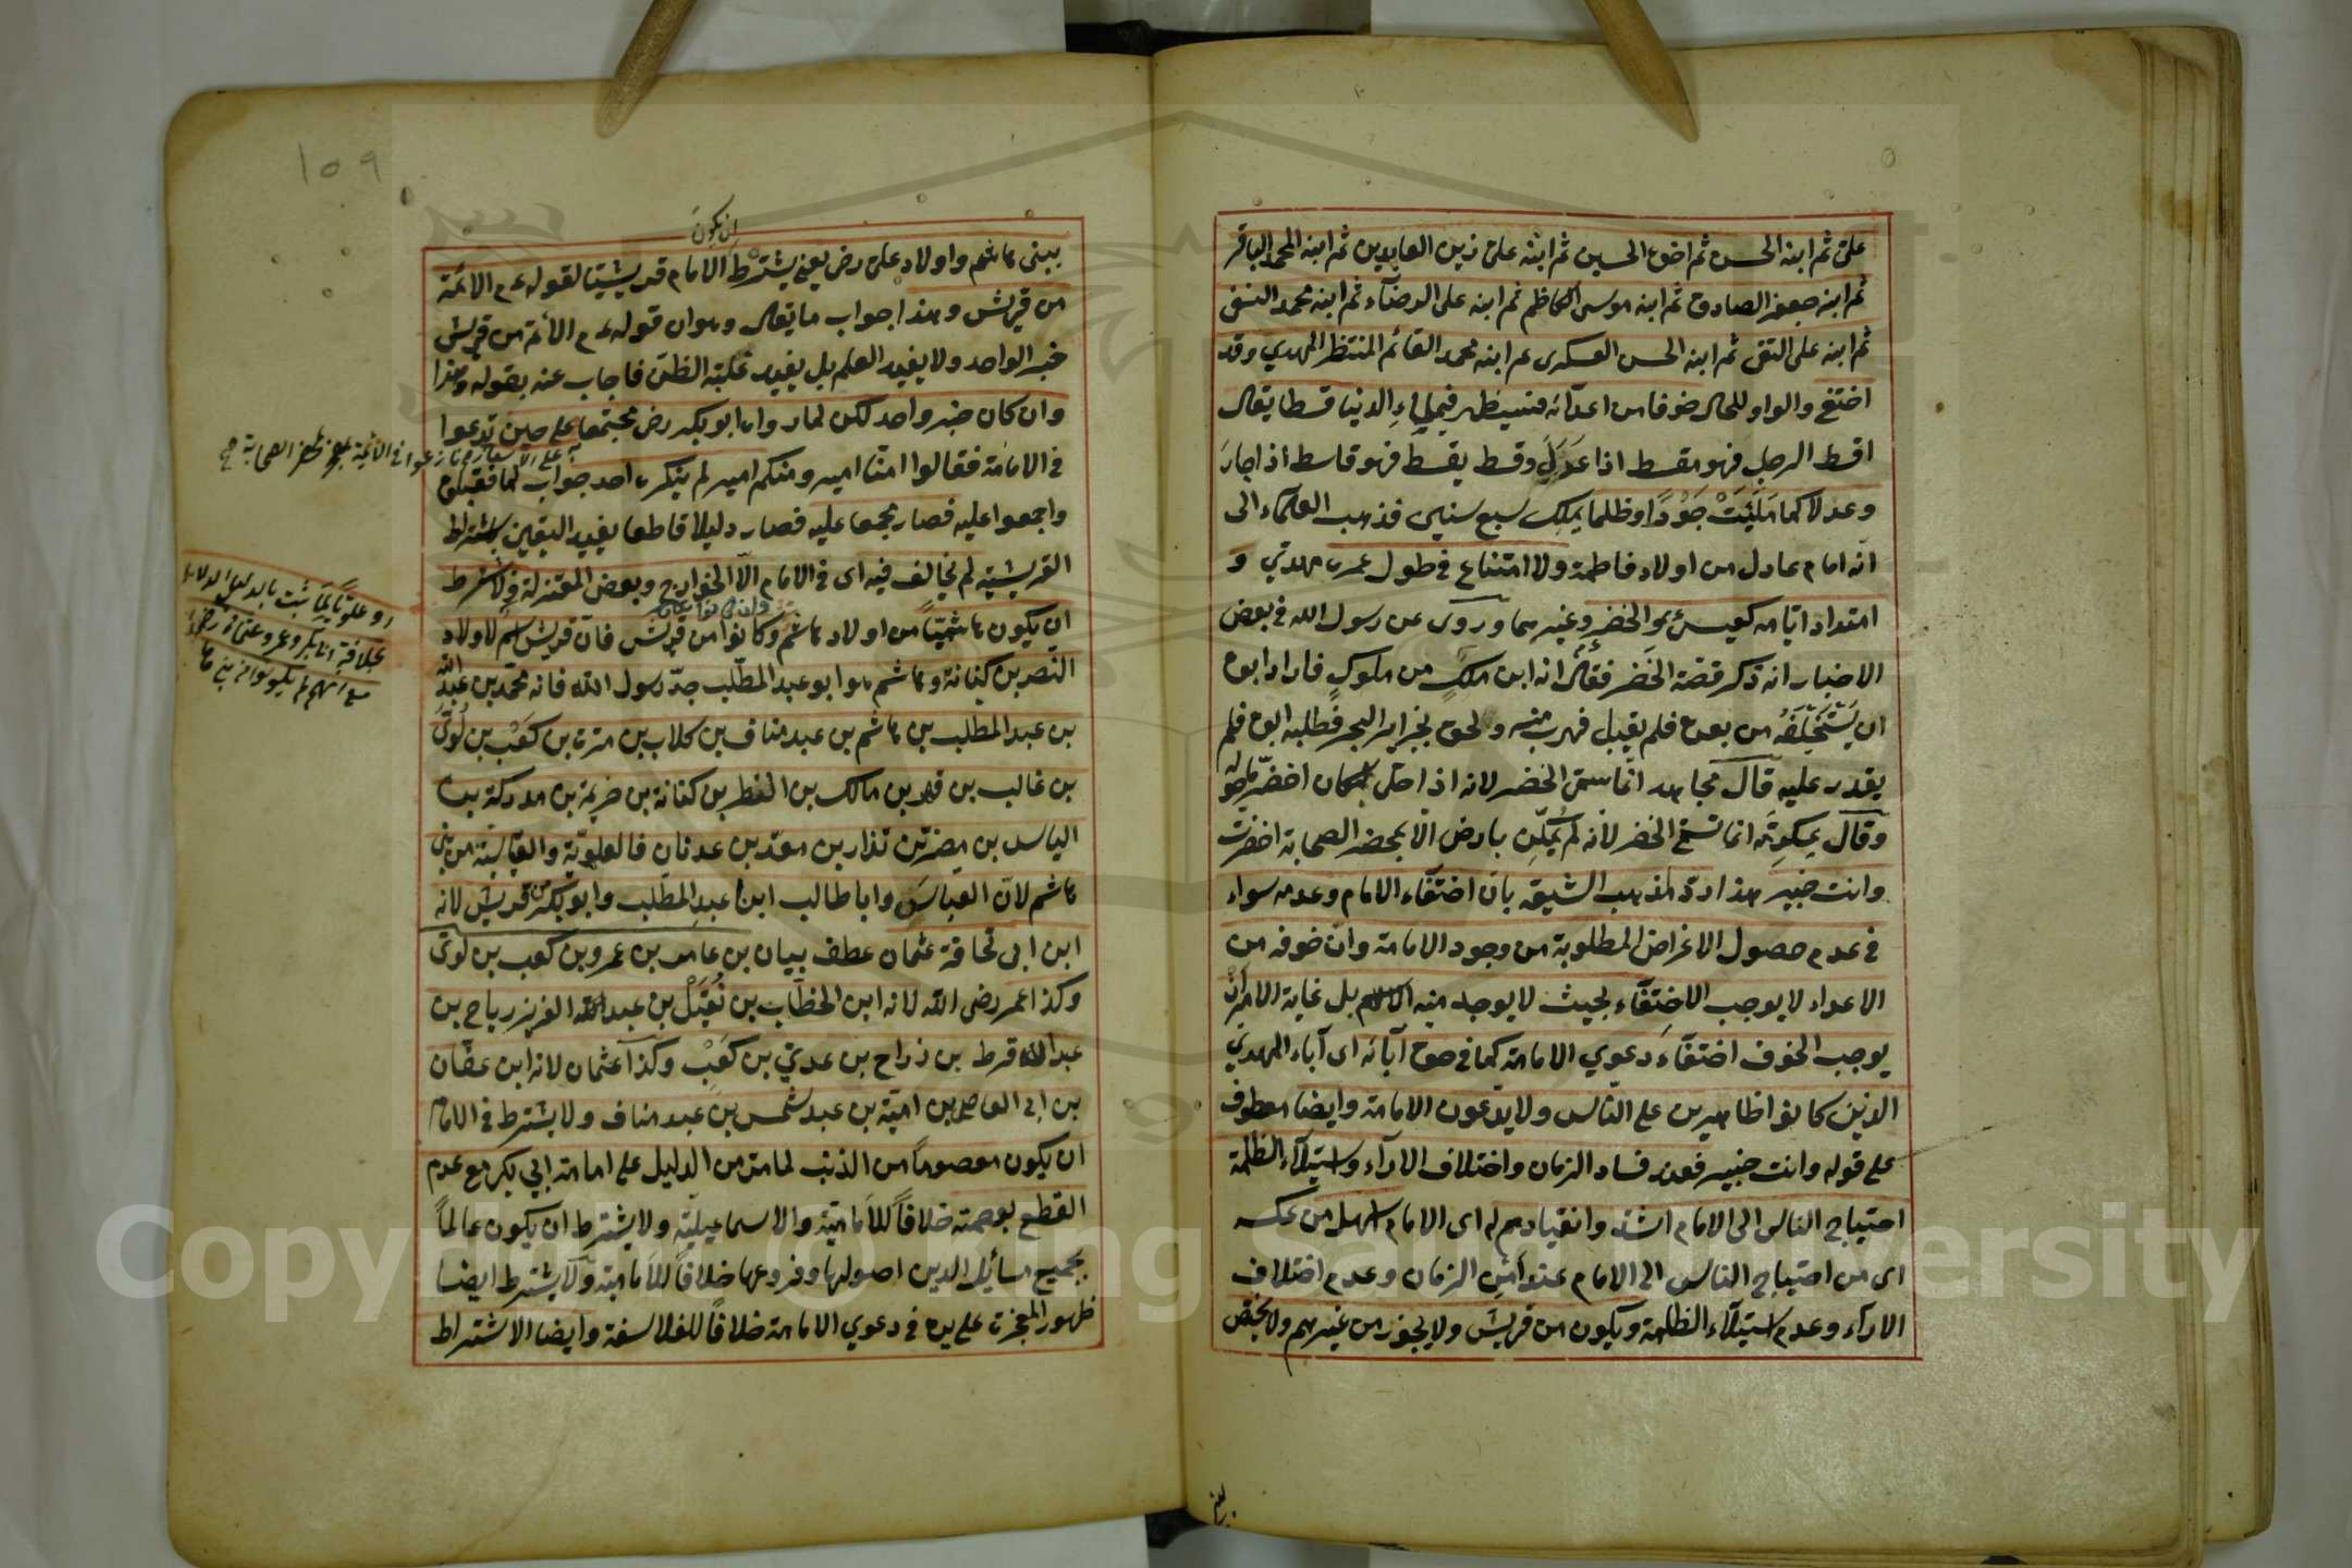 علي ثم ابنه الحسن ثم اخوه الحسين ثم ابنه علي زين العابدين ثم ابنه المحمد الباقر
ثم ابنه جعفر الصادق ثم ابنه موسى الكاظم ثم ابنه على الرضاء ثم ابنه محمد التقى
ثم ابنه على النقى ثم ابنه الحسن العسكرى ثم ابنه محمد القائم المنتظر المهدي وقد
اختفى والواو للحال خوفا من اعدائه فسيظهر فيملاء الدنيا قسطا يقال
اقسط الرجل فهو مقسط اذا عَدَلَ وقسط يقسط فهو قاسط اذا جارَ
وعدلا كما مُلِئَتْ جَوْرًا وظلما يملك سبع سنين فذهب العلماء الى
انه امام عادل من اولاد فاطمة ولا امتناع في طول عمره مهدي و
امتداد ايامه كعيسى والخضر وغيرهما وروى عن رسول الله في بعض
الاخبار انه ذكر قصة الخضر فقال انه ابن ملك من ملوك فاراد ابوه
ان يَسْتَخْلِفَهُ من بعده فلم يقبل فهرب منه ولحق بجزاير البحر فطلبه ابوه فلم
يقدر عليه قال مجاهد انما سمى الخضر لانه اذا صلى بمكان اخضر ما حوله
وقال عكرمة انما تسمى الخضر لانه لم يكن بارض الا
وانت خبير هذا رد لمذهب الشيعة بان اختفاء الامام وعدمه سواء
في عدم حصول الاغراض المطلوبة من وجود الامامة وان خوفه من
الاعداء لا يوجب الاختفاء بحيث لا يوجد منه الا الاسم بل غاية الامر ان
يوجب الخوف اختفاء دعوي الامامة كما في حق آبائه اى آباء المهدي
الذين كانوا ظاهرين على الناس ولا يدعون الامامة وايضا معطوف
على قوله وانت خبير فعند فساد الزمان واختلاف الارآء واستيلاء الظلمة
احتياج الناس الى الامام اشد وانقيادهم له اى الامام اسهل من عكسه
اى من احتياج الناس الى الامام عند امن الزمان وعدم اختلاف
الارآء وعدم استيلاء الظلمة ويكون من قريش ولا يجوز من غيرهم ولا يختص
109
ان يكون
ببنى هاشم واولاد على رض يعنى يشترط الامام قريشيتا لقوله عم الائمة
من قريش وهذا جواب ما يقال وهو ان قوله عم الائمة من قريش
خبر الواحد ولا يفيد العلم بل يفيد غلبة الظن فاجاب عنه بقوله وهذا
وان كان خبر واحد لكن لما رواه ابو بكر رض مجتمعا على حين تدعوا
في الامامة فقالوا امنا امير ومنكم امير لم ينكره احد جواب لما فقبلوه
واجمعوا عليه فصار مجمعا عليه فصار دليلا قاطعا يفيد اليقين باشتراط
القريشية لم يخالف فيه اى في الامام الا الخوارج وبعض المعتزلة ولا يشترط
ان يكون هاشميا من اولاد هاشم وكانوا من قريش فان قريش اسم لاولاد
النضر بن كنانة وهاشم هو ابو عبد المطلب جد رسول الله فانه محمد بن عبد الله
بن عبد المطلب بن هاشم بن عبد مناف بن كلاب بن مرة بن كَعْب بن لُوَىّ
بن غالب بن فهر بن مالك بن النضر بن كنانة بن خزيمة بن مدركة بن
الياس بن مضر بن نذار بن معد بن عدنان فالعلوية والعباسية من بنى
هاشم لان العباس وابا طالب ابنا عبد المطلب وابو بكر من قريش لانه
ابن ابى قحافة عثمان عطف بيان بن عامر بن عمرو بن كعب بن لوى
وكذا عمر رضى الله لانه ابن الخطاب بن نُفَيْل بن عبد العزيز رباح بن
عبد الله قرط بن زراح بن عدي بن كَعْب وكذا عثمان لانه ابن عفان
بن ابى العاص بن امية بن عبد شمس بن عبد مناف ولا يشترط في الامام
ان يكون معصوما من الذنب لما مر من الدليل على امامة ابي بكر مع عدم
القطع بعصمته خلافاً للامامية والاسماعيلية ولا يشترط ان يكون عالماً
بجميع مسائل الدين اصولها وفروعها خلافاً للامامية ولا يشترط ايضا
ظهور المعجزة على يده في دعوي الامامة خلافاً للغلا سفة وايضا الاشتراط
بخلافة ابا بكر وعمر وعثمان
مع انهم لم يكونوا من بنى هاشم
Copyright © King Saud University